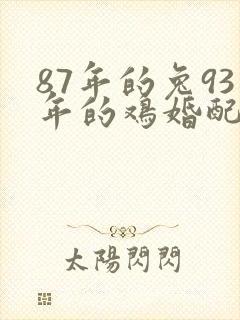 87年的兔93
年的鸡婚配
太陽閃閃